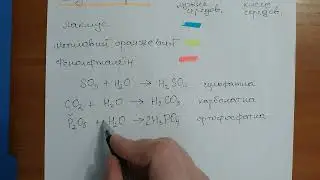 лужне кисле
середов. середов.
лакмус
метиловий оранжевий
фенолфталеїн
SO₃ + H₂O → H₂SO₄ сульфатна
CO₂ + H₂O → H₂CO₃ карбонатна
P₂O₅ + H₂O → 2H₃PO₄ ортофосфатна